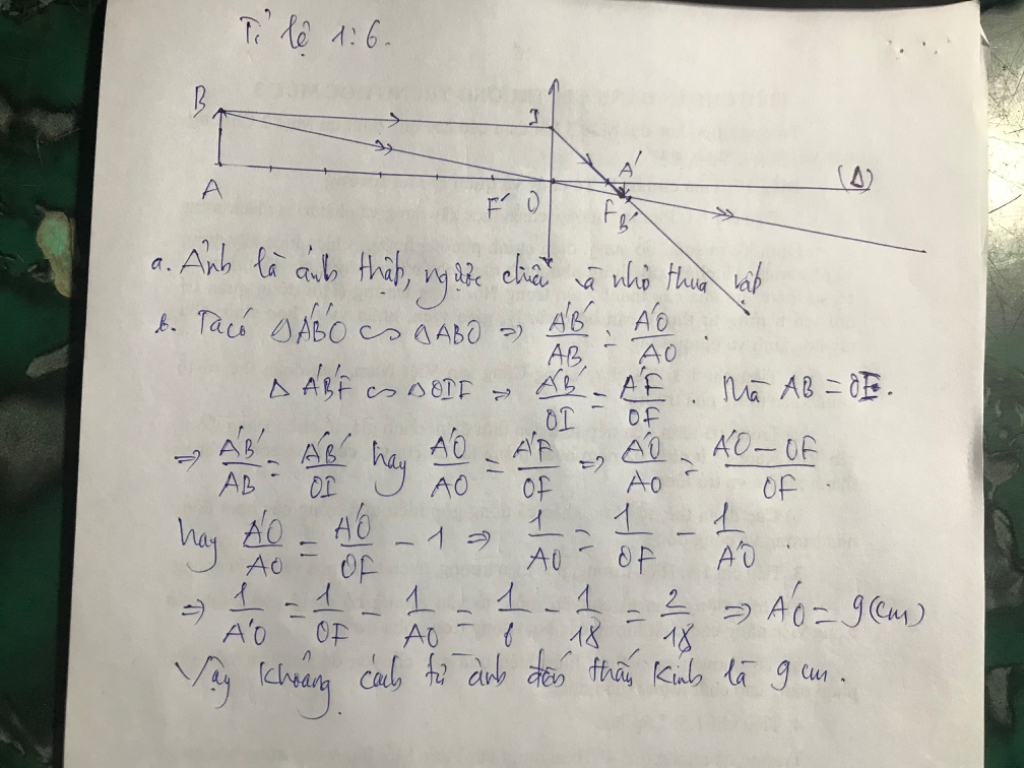 Tỉ lệ 1:6.
B I A' (Δ)
A F' O F B'
a. Ảnh là ảnh thật, ngược chiều và nhỏ thua vật
b. Ta có ΔA'B'O ∽ ΔABO ⇒ A'B'/AB = A'O/AO.
ΔA'B'F ∽ ΔOIF ⇒ A'B'/OI = A'F/OF mà AB = OI.
⇒ A'B'/AB = A'B'/OI hay A'O/AO = A'F/OF ⇒ A'O/AO = A'O - OF/OF
hay A'O/AO = A'O/OF - 1 ⇒ 1/AO = 1/OF - 1/A'O.
⇒ 1/A'O = 1/OF - 1/AO = 1/6 - 1/18 = 2/18 ⇒ A'O = 9(cm)
Vậy khoảng cách từ ảnh đến thấu kính là 9 cm.